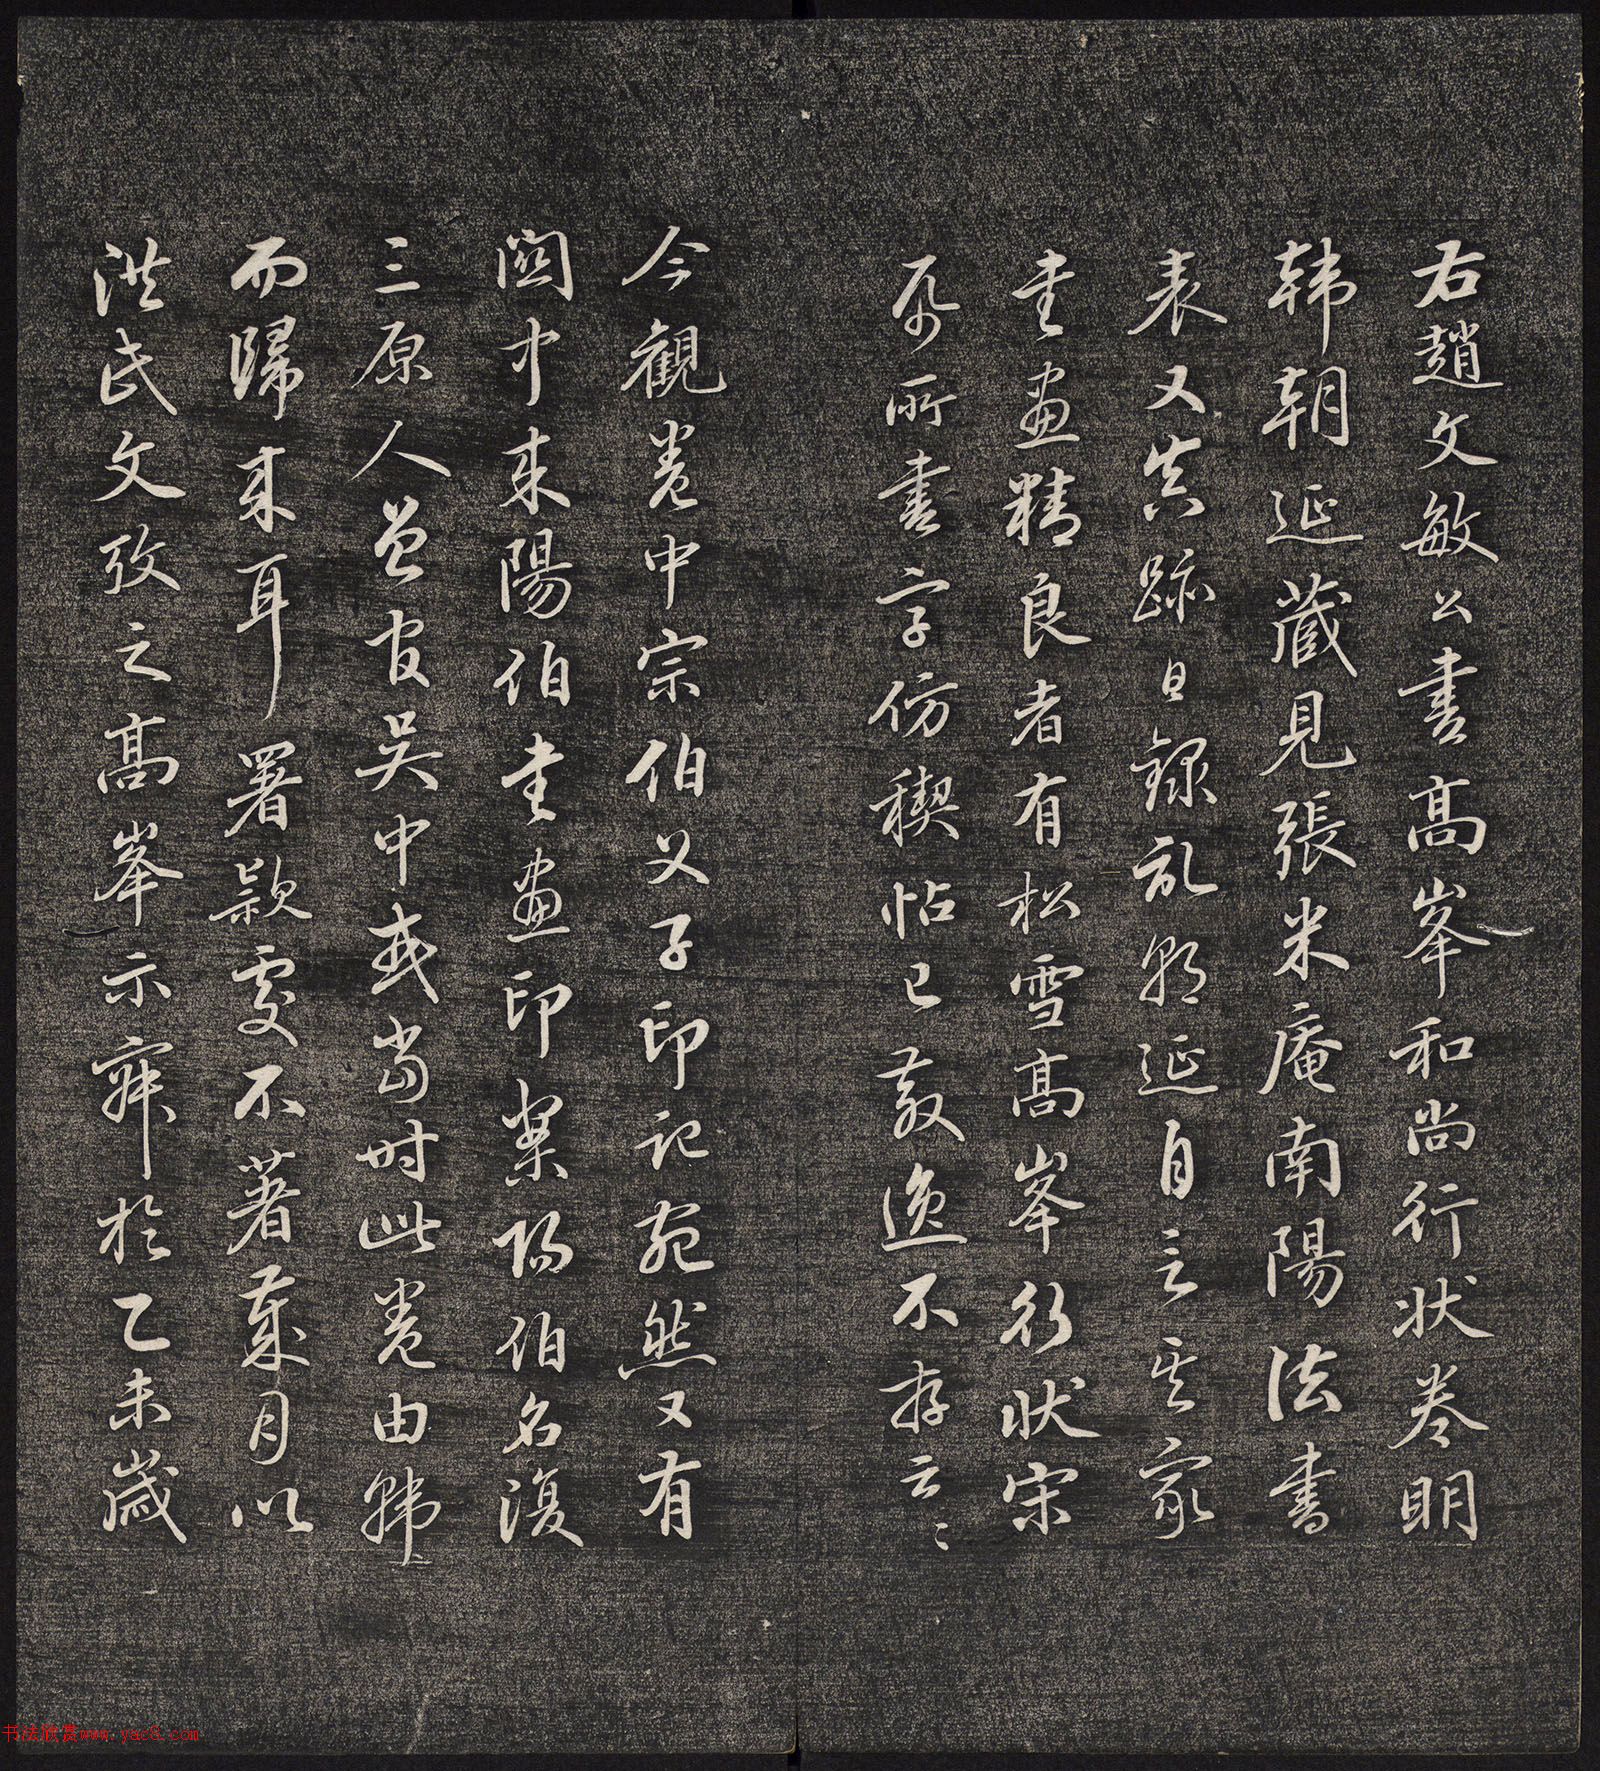 右趙文敏公書高峯和尚行狀卷明
韩朝延藏見張米庵南陽法書
表又真跡日録朝延自言其家
書畫精良者有松雪高峯行狀宋
帋所書字仿稧帖已散逸不存云〻
今觀卷中宗伯父子印記宛然又有
關中来陽伯書畫印案陽伯名復
三原人曾官吳中或當时此卷由韩
而歸来耳署款處不著歲月以
洪氏文攷之高峯示寂於乙未歲
书法欣赏www.yac8.com